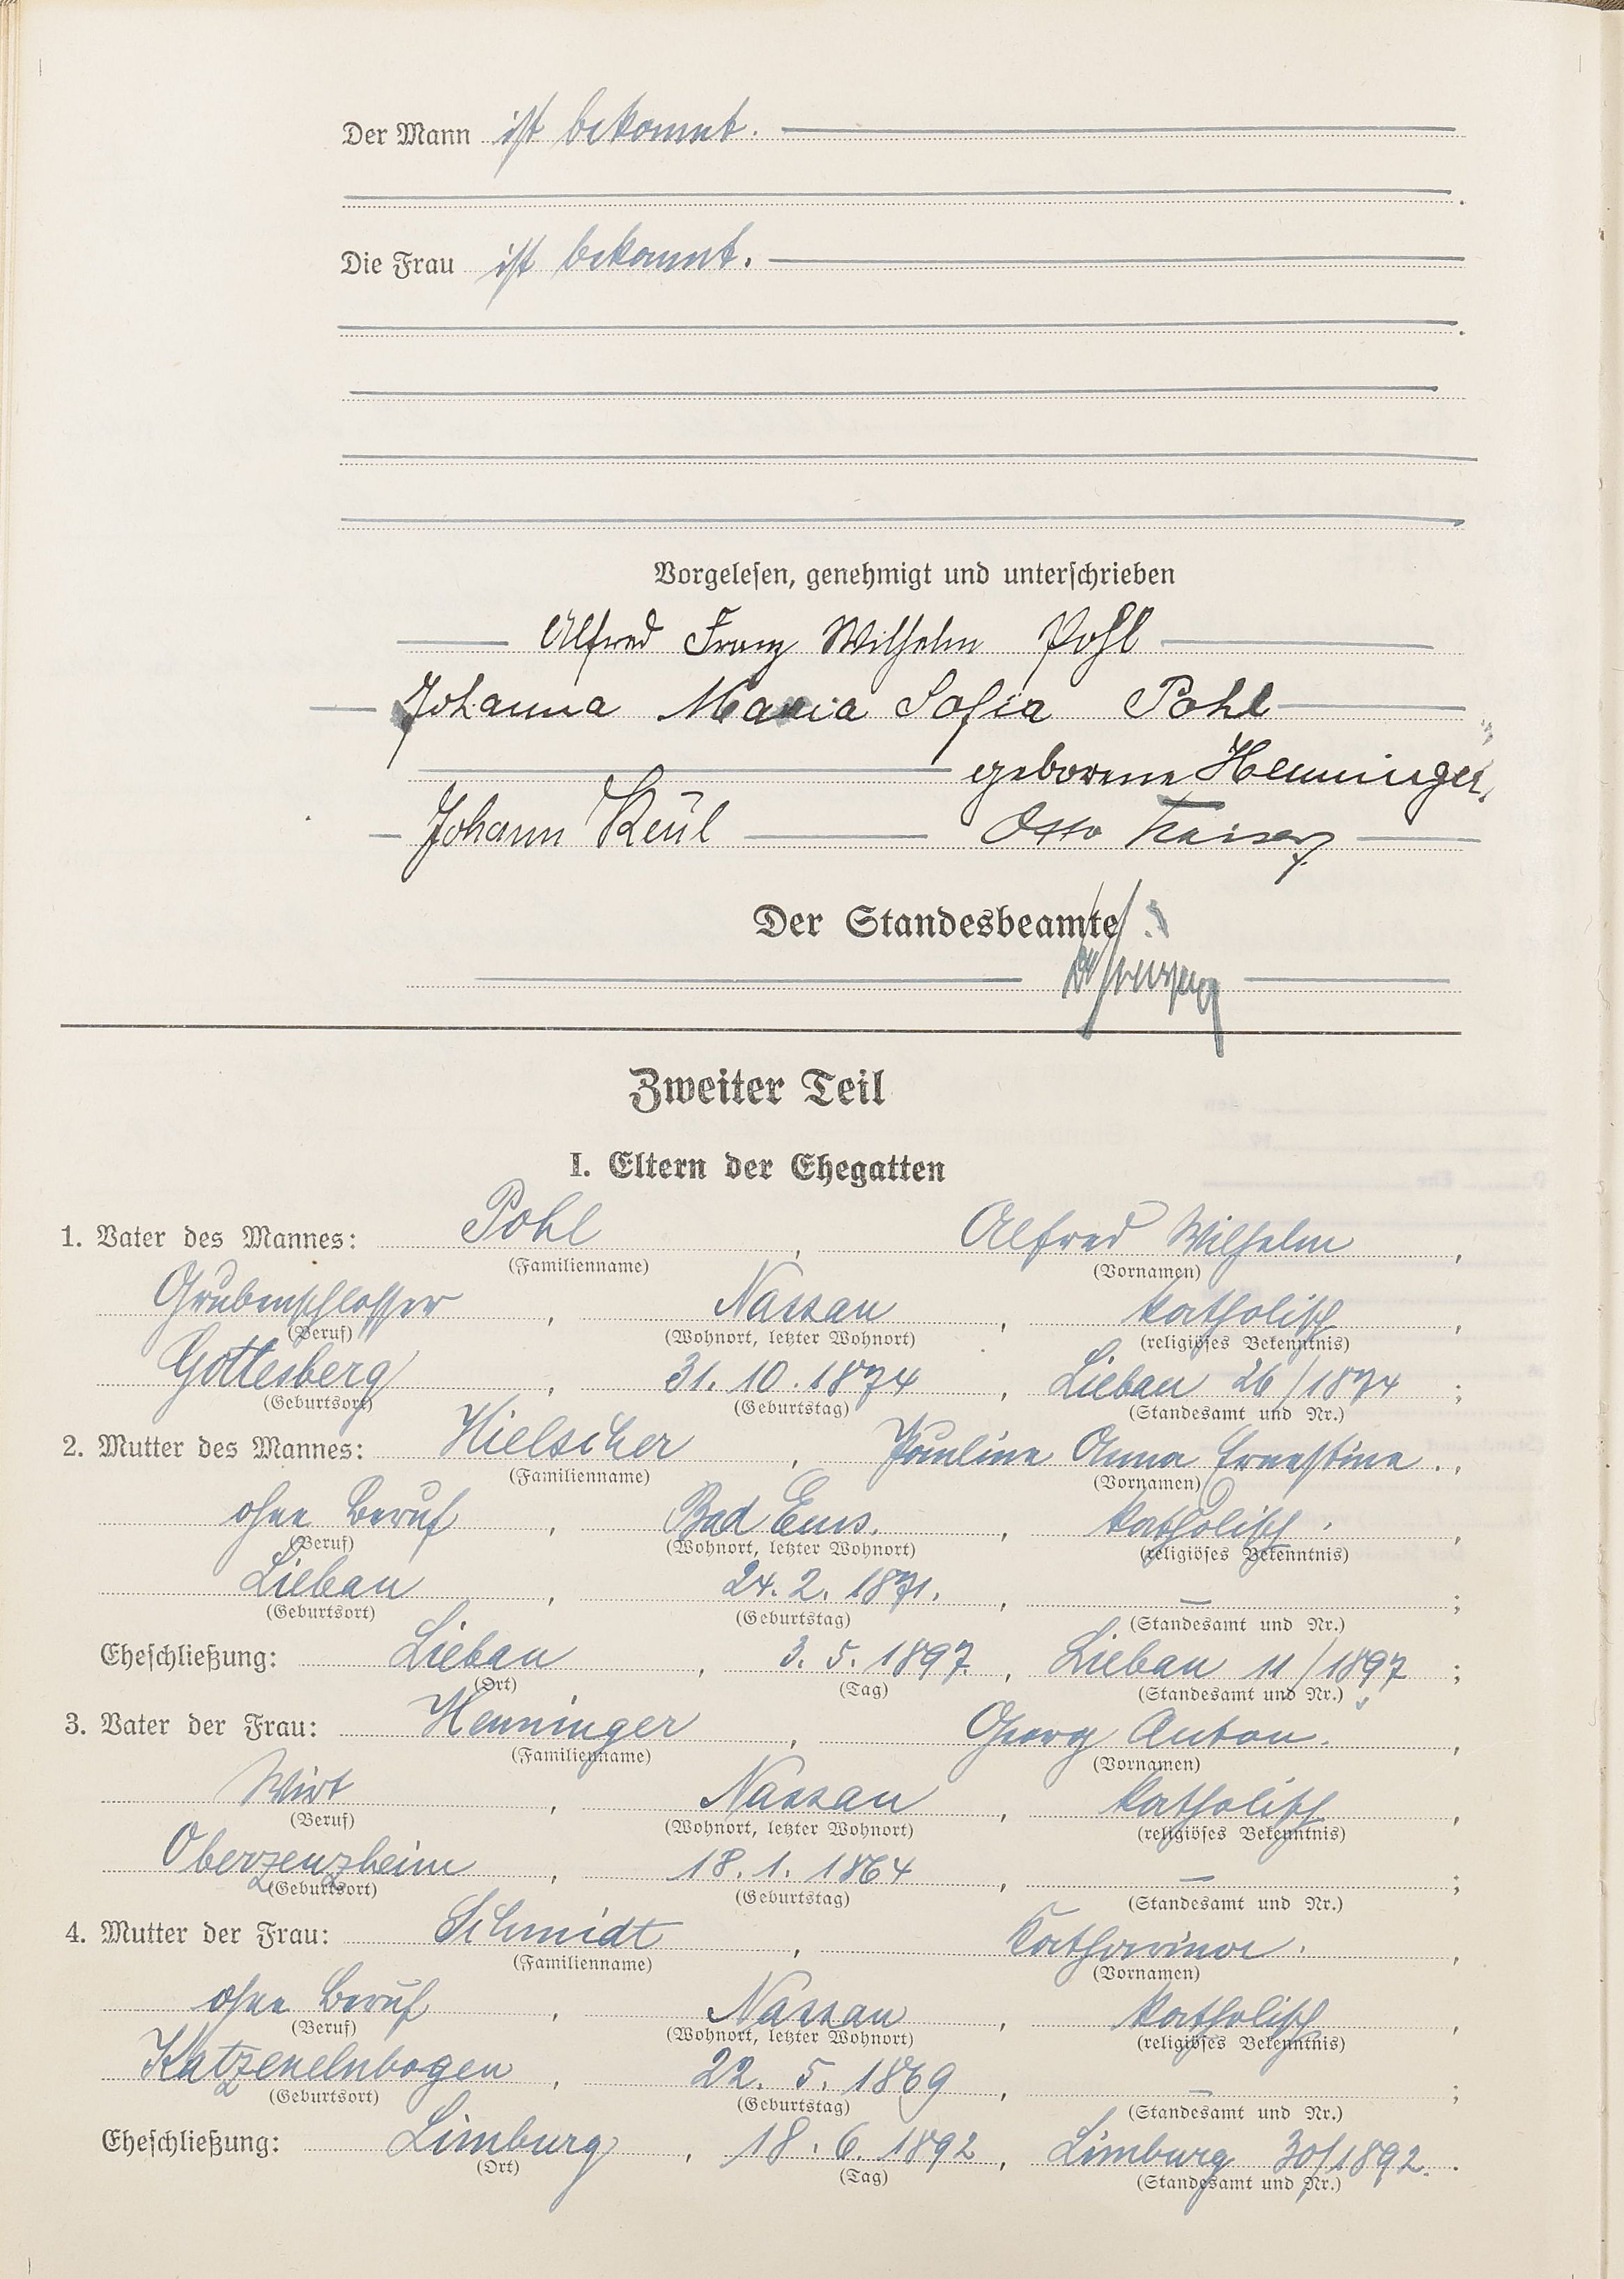 Der Mann ist bekannt.
Die Frau ist bekannt.
Vorgelesen, genehmigt und unterschrieben
Alfred Franz Wilhelm Pohl
Johanna Maria Sofia Pohl
geborene Henninger.
Johann Keul Otto Kaiser
Der Standesbeamte
Zweiter Teil
I. Eltern der Ehegatten
1. Vater des Mannes: Pohl, Alfred Wilhelm,
(Familienname) (Vornamen)
Grubenschlosser, Nassau, katholisch,
(Beruf) (Wohnort, letzter Wohnort) (religiöses Bekenntnis)
Gottesberg, 31. 10. 1874, Liebau 26/1874;
(Geburtsort) (Geburtstag) (Standesamt und Nr.)
2. Mutter des Mannes: Hielscher, Pauline Anna Ernestine.,
(Familienname) (Vornamen)
ohne Beruf, Bad Ems., katholisch.,
(Beruf) (Wohnort, letzter Wohnort) (religiöses Bekenntnis)
Liebau, 24. 2. 1871., —;
(Geburtsort) (Geburtstag) (Standesamt und Nr.)
Eheschließung: Liebau, 3. 5. 1897, Liebau 11/1897;
(Ort) (Tag) (Standesamt und Nr.)
3. Vater der Frau: Henninger, Georg Anton.,
(Familienname) (Vornamen)
Wirt, Nassau, katholisch,
(Beruf) (Wohnort, letzter Wohnort) (religiöses Bekenntnis)
Oberzeuzheim, 18. 1. 1864, —;
(Geburtsort) (Geburtstag) (Standesamt und Nr.)
4. Mutter der Frau: Schmidt, Katharina.,
(Familienname) (Vornamen)
ohne Beruf, Nassau, katholisch,
(Beruf) (Wohnort, letzter Wohnort) (religiöses Bekenntnis)
Katzenelnbogen, 22. 5. 1869, —;
(Geburtsort) (Geburtstag) (Standesamt und Nr.)
Eheschließung: Limburg, 18. 6. 1892, Limburg 30/1892.
(Ort) (Tag) (Standesamt und Nr.)